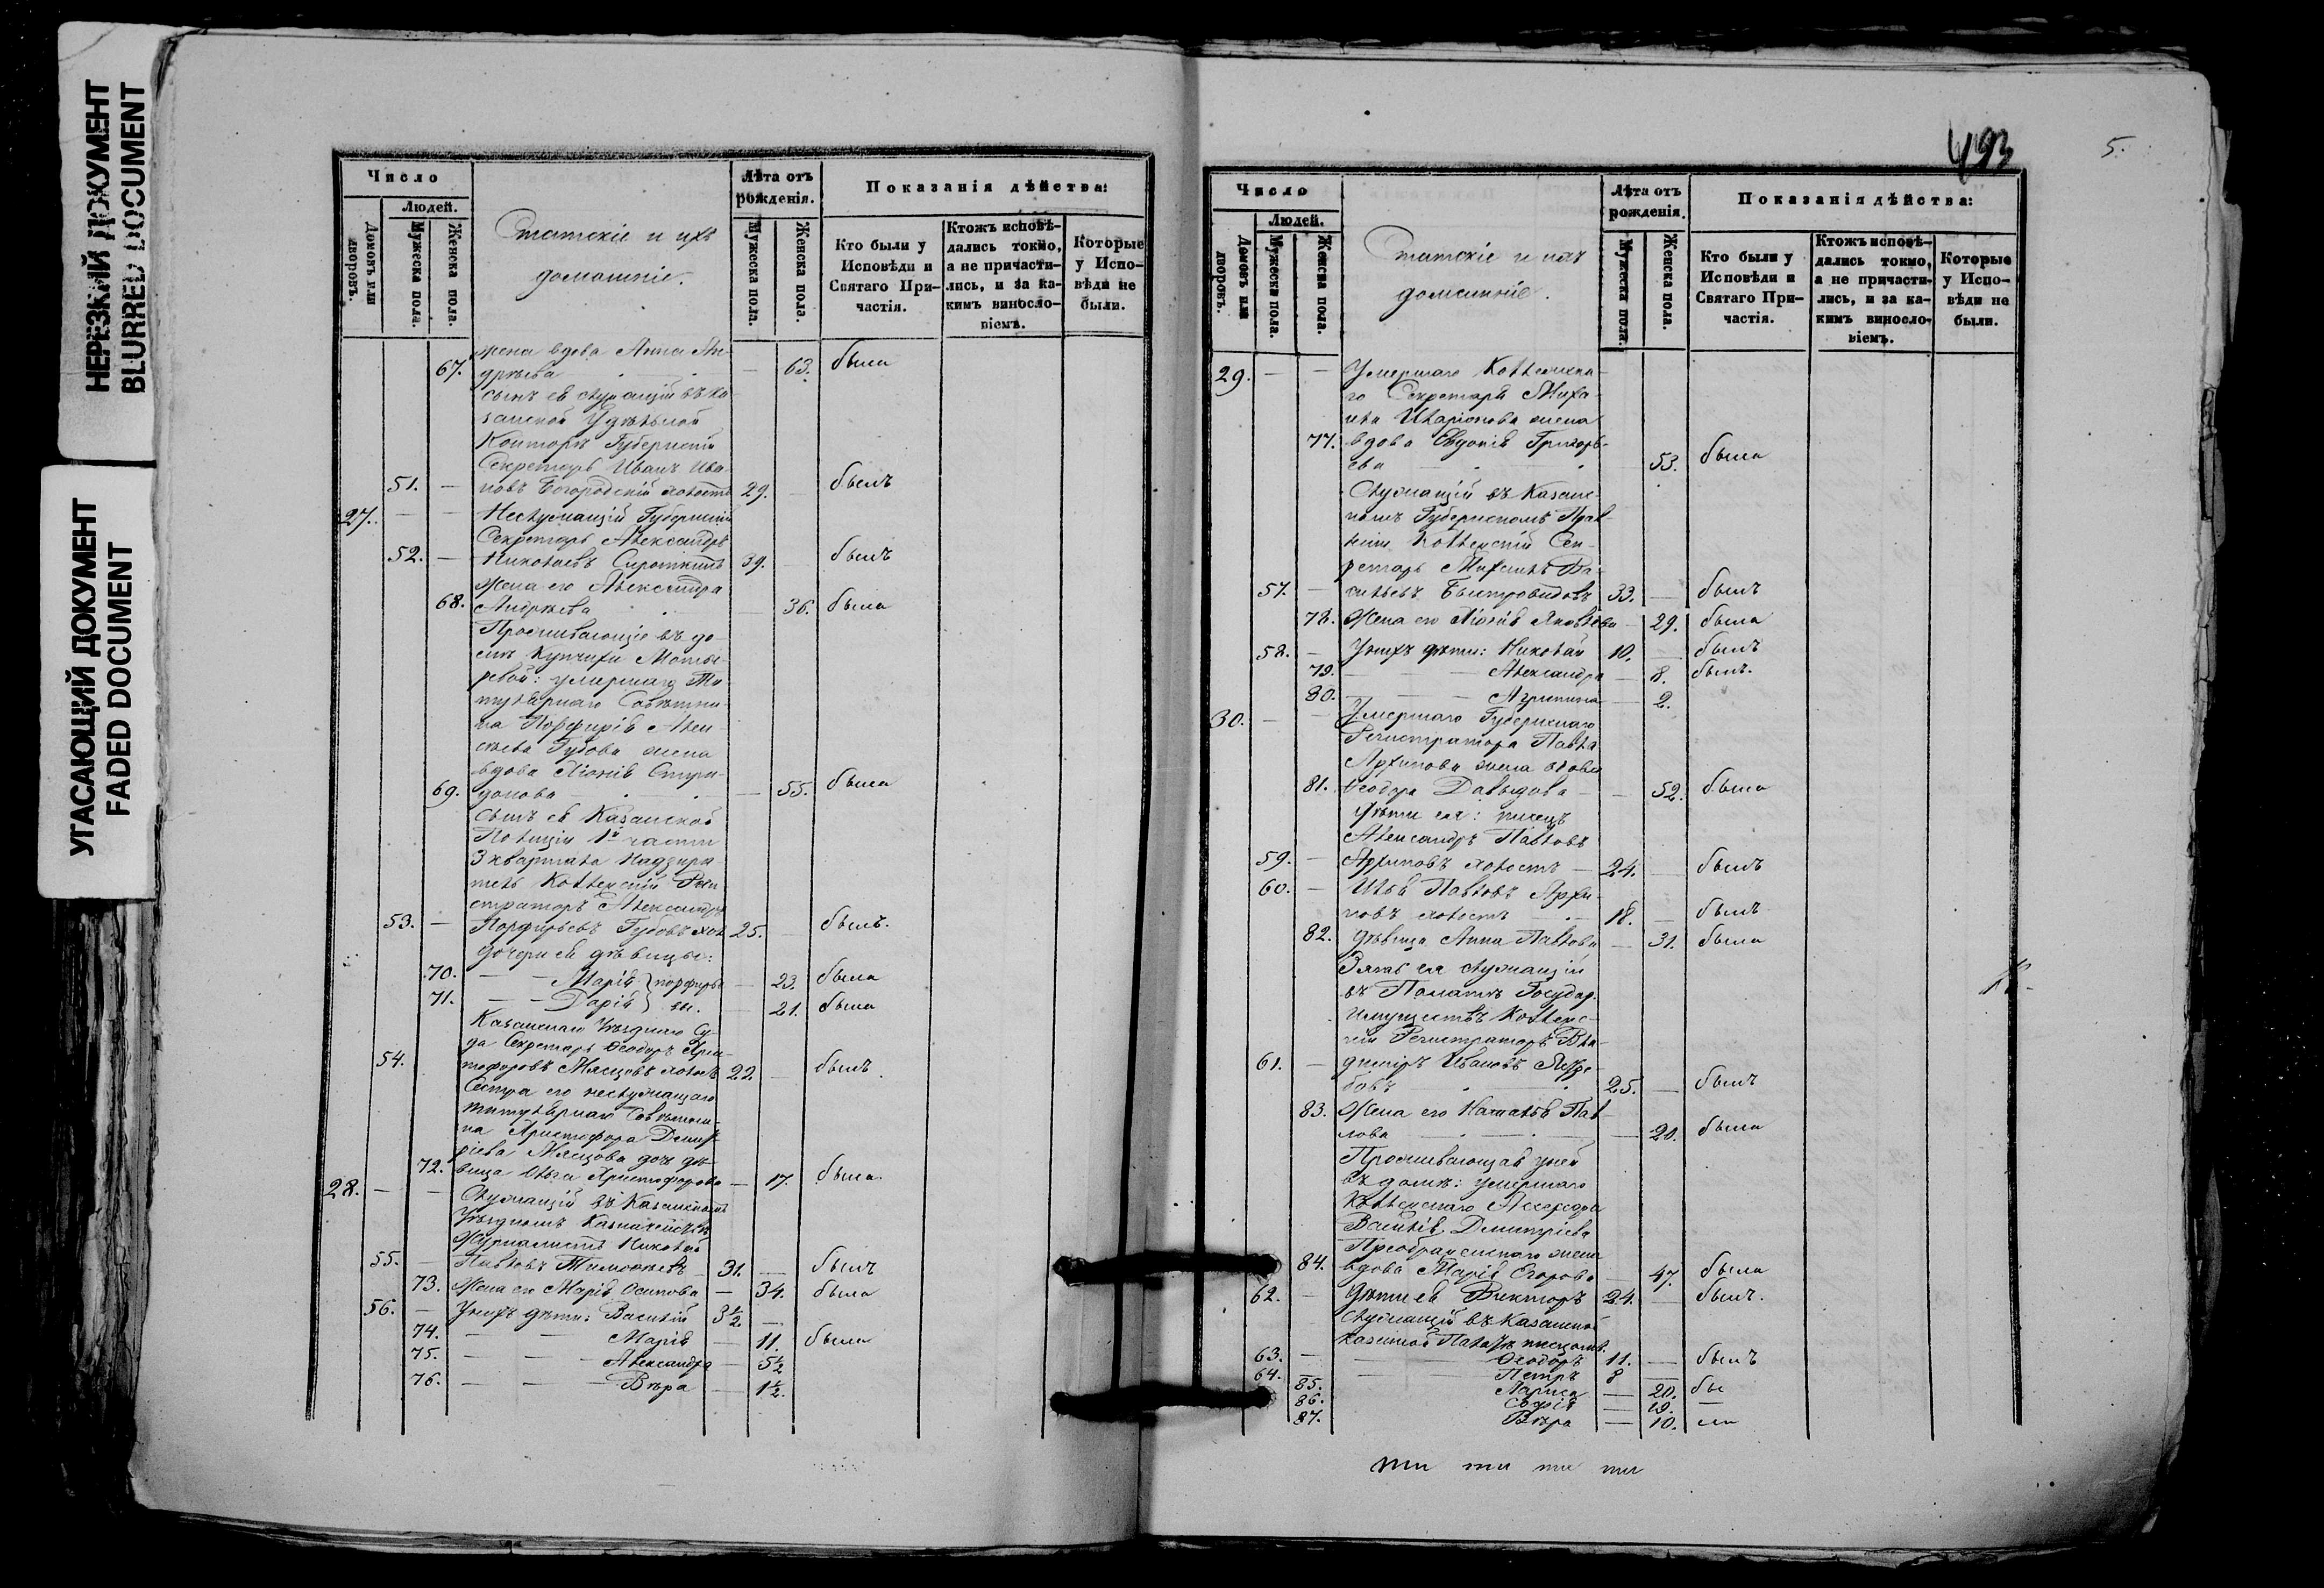 НЕРЕЗКИЙ ДОКУМЕНТ
BLURRED DOCUMENT
УГАСАЮЩИЙ ДОКУМЕНТ
FADED DOCUMENT
Число
Людей.
Домовъ или дворовъ.
Мужеска пола.
Женска пола.
Статскіе и ихъ
домашніе.
Лѣта отъ рожденія.
Мужеска пола.
Женска пола.
Показанія дѣйства:
Кто были у Исповѣди и Святаго Причастія.
Ктожъ исповѣдались токмо, а не причастились, и за какимъ винословіемъ.
Которые у Исповѣди не были.
жена вдова Анна Ан-
67. дрѣева — 63. была
сынъ ея служащій въ Ка-
занской Удѣльной
Конторѣ Губернскій
Секретарь Иванъ Ива-
51. — новъ Богородскій холостъ 29. — былъ
27. — — Неслужащій Губернскій
Секретарь Александръ
52. — Николаевъ Сироткинъ 39. — былъ
жена его Александра
68. Андрѣева — 36. была
Проживающіе въ до-
мѣ Купчихи
умершаго Ти-
тулярнаго Совѣтни-
ка Порфирія Алек-
сѣева Губова жена
вдова Ксенія Спири-
69. донова — 55. была
Сынъ ея Казанской
Полиціи 1й части
3 квартала Надзира-
тель Коллежскій Реги-
страторъ Александръ
53. — Порфирьевъ Губовъ хол. 25. — былъ.
дочери ея дѣвицы:
70. — — Марія порфирье- — 23. была
71. — — Дарія вы. — 21. была
Казанскаго Уѣзднаго Су-
да Секретарь Ѳеодоръ Хрис-
54. тофоровъ Мясцовъ холостъ 22. — былъ.
Сестра его неслужащаго
титулярнаго Совѣтни-
ка Христофора Димит-
ріева Мясцова дочь дѣ-
72. вица Ольга Христофорова — 17. была.
28. — — Служащій въ Казанскомъ
Уѣздномъ Казначействѣ
Журналистъ Николай
55. — Павловъ Тимофѣевъ 31. — былъ
73. Жена его Марія Осипова — 34. была
56. — У нихъ дѣти: Василій 3½ —
74. — — Марія — 11. была
75. — — — Александра — 5½
76. — — — Вѣра — 1½.
493
5.
Число
Людей.
Домовъ или дворовъ.
Мужеска пола.
Женска пола.
Статскіе и ихъ
домашніе.
Лѣта отъ рожденія.
Мужеска пола.
Женска пола.
Показанія дѣйства:
Кто были у Исповѣди и Святаго Причастія.
Ктожъ исповѣдались токмо, а не причастились, и за какимъ винословіемъ.
Которые у Исповѣди не были.
29. — — Умершаго Коллежска-
го Секретаря Миха-
ила Иларіонова жена
77. вдова Евдокія Григорь-
ева — 53. была
Служащій въ Казанс-
комъ Губернскомъ Прав-
леніи Коллежскій Сек-
ретарь Михаилъ Ва-
57. — сильевъ Быстровидовъ 33. — былъ
78. Жена его Ксенія Яковлева — 29. была
58. — У нихъ дѣти: Николай 10. — былъ
79. — — — Александра — 8. былъ.
80. — — — Агрипина — 2.
30. — — Умершаго Губернскаго
Регистратора Павла
Архипова жена вдова
81. Ѳеодора Давыдова — — 52. была
Дѣти ея: писецъ
Александръ Павловъ
59. — Архиповъ холостъ — 24. — былъ
60. — Илья Павловъ Архи-
повъ холостъ — 18. — былъ
82. дѣвица Анна Павлова — 31. была
Зять ея служащій
въ Палатѣ Государ.
Имуществъ Коллежс-
кій Регистраторъ Вла-
61. — диміръ Ивановъ
25. — былъ
83. Жена его Наталья Пав-
лова — — 20. была
Проживающая у ней
въ домѣ: умершаго
Коллежскаго Ассесора
Василія Димитріева
Преображенскаго жена
84. вдова Марія Егорова — 47. была
62. — Дѣти ея Викторъ 24. — былъ.
Служащій въ Казанской
казенной Палатѣ писцомъ.
63. — — Ѳеодоръ 11. — былъ
64. — — Петръ 8 —
85. Лариса — 20. бы
86. Софія — 19. —
87. Вѣра — 10. ли